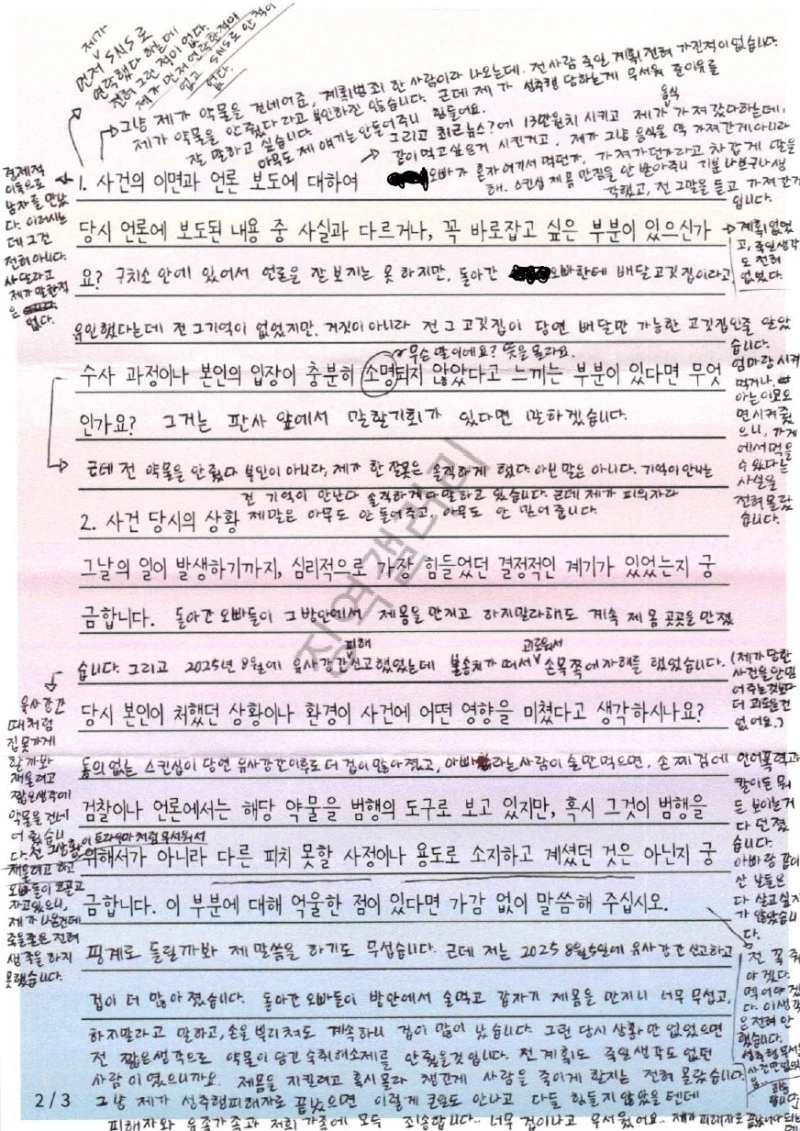 제가
먼저 SNS로
연락했다 하는데
전혀 그런적이 없다.
제가 먼저 연락한적도
없고 SNS로 안 적이
없다.
그냥 제가 약물을 건네어준, 계획범죄 한 사람이라 나오는데. 전 사람 죽일 계획 전혀 가진적이 없습니다.
제가 약물을 안 줬다 라고 부인하진 않습니다. 근데 제가 성추행 당하는게 무서워 준이유를
잘 말하고 싶습니다. 아무도 제 얘기는 안들어주니 힘들어요.
그리고 최근뉴스?에 13만원치 시키고 제가 음식 가져갔다하는데,
같이먹고싶은거 시킨거고, 제가 그냥 음식을 막 가져간게 아니라
오빠가 혼자 여기서 먹던가, 가져가던지라고 차갑게 말을
해. 스킨십 제 몸 만짐을 안 받아주니 기분 나쁘구나 생
각했고, 전 그말을 듣고 가져간거
입니다.
경제적
이득으로
남자를 만났
다. 이러시는
데 그건
전혀 아니다.
사달라고
제가 말한적
은
없다.
1. 사건의 이면과 언론 보도에 대하여
당시 언론에 보도된 내용 중 사실과 다르거나, 꼭 바로잡고 싶은 부분이 있으신가
요? 구치소 안에 있어서 언론을 잘 보지는 못 하지만, 돌아간 오빠한테 배달고깃집이라고
계획 없었
고, 죽일생각
도 전혀
없었다.
유인했다는데 전 그기억이 없었지만, 거짓이 아니라 전 그 고깃집이 당연 배달만 가능한 고깃집인줄 알았
습니다.
엄마랑 시켜
먹거나,
아는이모도
면 시켜줬
으니, 가게
에서 먹을
수 있다는
사실을
전혀 몰랐
습니다.
무슨 말이에요? 뜻을 몰라요.
수사 과정이나 본인의 입장이 충분히 소명되지 않았다고 느끼는 부분이 있다면 무엇
인가요? 그거는 판사 앞에서 말할기회가 있다면 말하겠습니다.
근데 전 약물을 안줬다 부인이 아니라, 제가 한 잘못은 솔직하게 했다. 아닌 말은 아니다. 기억이 안나는
건 기억이 안난다 솔직하게 다 말하고 있습니다. 근데 제가 피의자라
제말은 아무도 안 들어주고, 아무도 안 믿어 줍니다.
2. 사건 당시의 상황
그날의 일이 발생하기까지, 심리적으로 가장 힘들었던 결정적인 계기가 있었는지 궁
금합니다. 돌아간 오빠들이 그 방안에서 제몸을 만지고 하지말라해도 계속 제 몸 곳곳을 만졌
습니다. 그리고 2025년 8월에 유사강간 피해 신고했었는데 불송치가 떠서 괴로워서 손목쪽에 자해를 했었습니다. (제가 당한
사건을 안믿
어주는것보다
더 괴로운건
없어요.)
당시 본인이 처했던 상황이나 환경이 사건에 어떤 영향을 미쳤다고 생각하시나요?
동의 없는 스킨십이 당연 유사강간이후로 더 겁이 많아졌고, 아빠라는 사람이 술만 먹으면, 손 찌검에 언어폭력과
칼이든 뭐
든 보이는게
다 던졌
습니다.
아빠랑 같이
산 날들은
다 살고 싶지
가 않았습니
다.
검찰이나 언론에서는 해당 약물을 범행의 도구로 보고 있지만, 혹시 그것이 범행을
위해서가 아니라 다른 피치 못할 사정이나 용도로 소지하고 계셨던 것은 아닌지 궁
금합니다. 이 부분에 대해 억울한 점이 있다면 가감 없이 말씀해 주십시오.
유사강간
때처럼
집 못가게
할 까봐
재울려고
짧은생각에
약물을 건네
어 줬습니
다. 전 그 상황이 트라우마처럼 무서워서
재울려고 하고
오빠들이 코골고
자고있으니,
제가 나온건데
죽을줄은 전혀
생각을 하지
못했습니다.
핑계로 들릴까봐 제 말씀을 하기도 무섭습니다. 근데 저는 2025 8월5일에 유사강간 신고하고
겁이 더 많아졌습니다. 돌아간 오빠들이 방안에서 술먹고 갑자기 제몸을 만지니 너무 무섭고,
하지말라고 말하고, 손을 뿌리쳐도 계속하니 겁이 많이 났습니다. 그런 당시 상황만 없었으면
전 짧은생각으로 약물이 담긴 숙취해소제를 안 줬을것 입니다. 전 계획도 죽일생각도 없던
사람이였으니까요. 제몸을 지킬려고 혹시몰라 챙긴게 사람을 죽이게 한지는 전혀 몰랐습니다.
그냥 제가 성추행피해자로 끝났으면 이렇게 큰일도 안나고 다들 힘들지 않았을텐데
피해자와 유족가족과 저희 가족에 모두 죄송합니다.. 너무 겁이나고 무서웠어요.
전 꼭 줘
야겠다.
먹여야겠
다. 이생각
은 전혀 안
했습니다.
2/3
징역갤러리